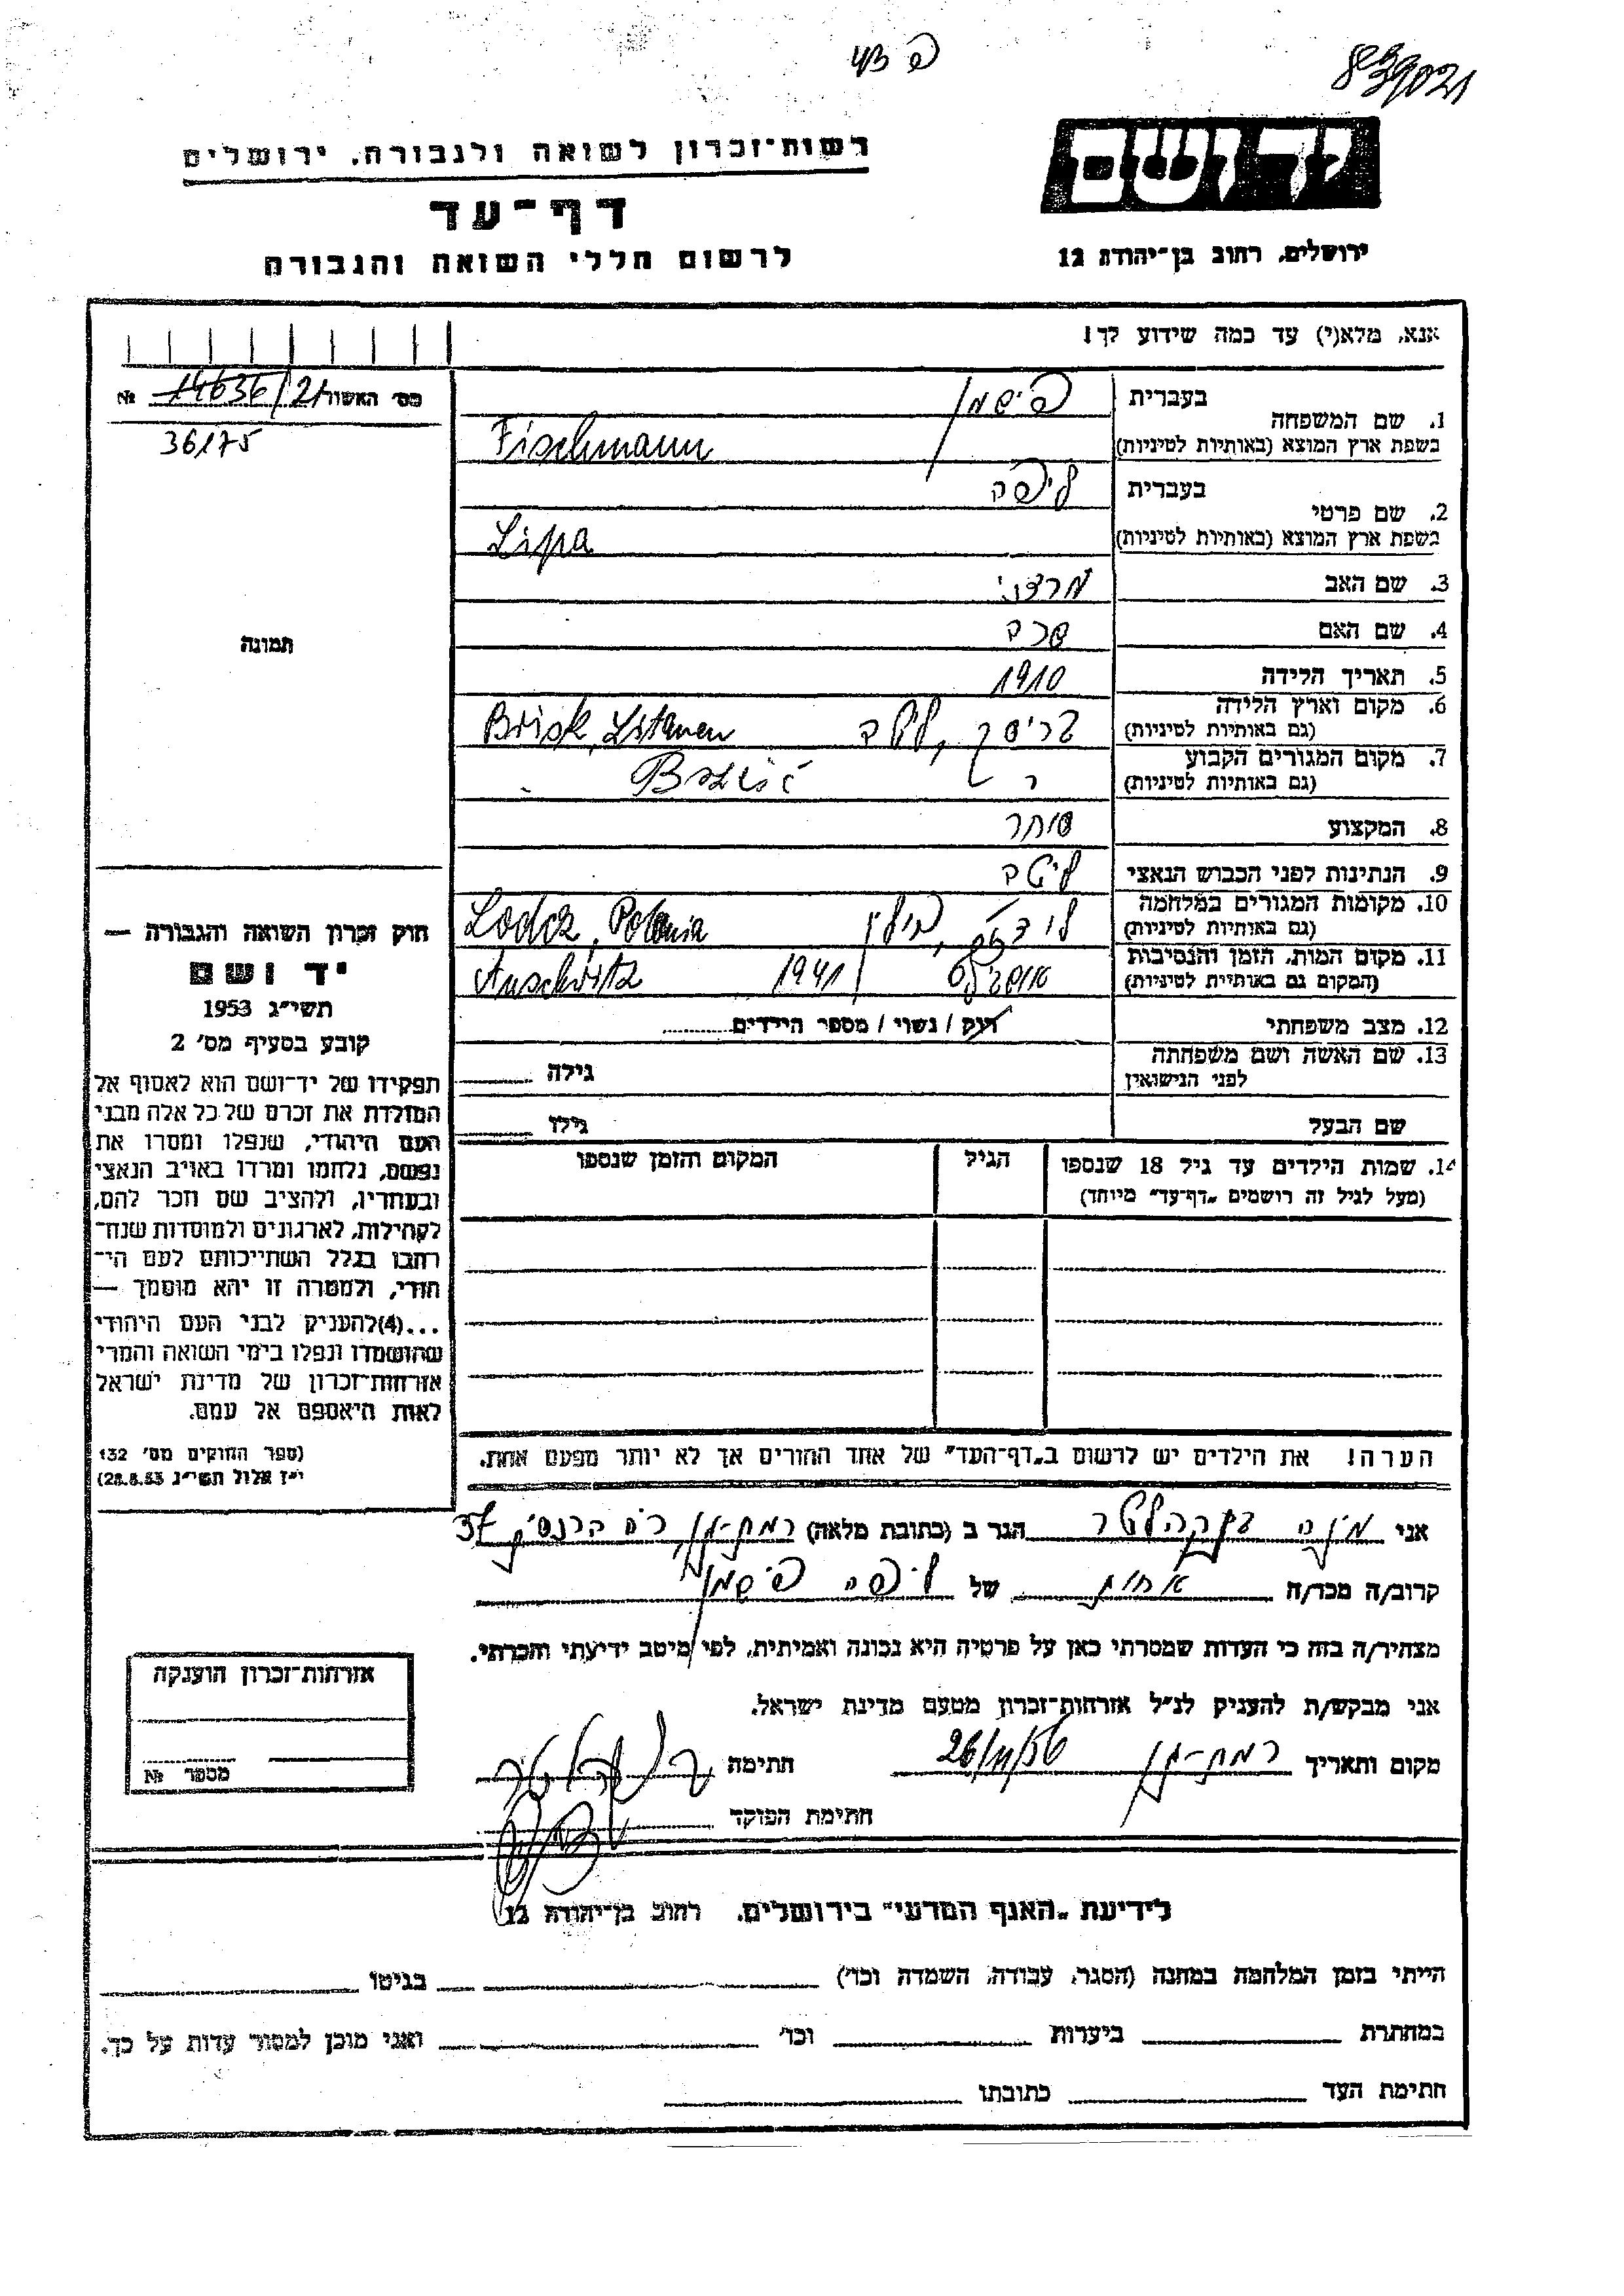 פ 43
839021
יד ושם
ירושלים, רחוב בן־יהודה 12
רשות־זכרון לשואה ולגבורה, ירושלים
דף־עד
לרשום חללי השואה והגבורה
אנא, מלא(י) עד כמה שידוע לך!
מס׳ האשור 14636/21 №
36175
1. שם המשפחה
בעברית פישמן
בשפת ארץ המוצא (באותיות לטיניות) Fischmann
2. שם פרטי
בעברית ליפה
בשפת ארץ המוצא (באותיות לטיניות) Lipa
3. שם האב מרדכי
4. שם האם
5. תאריך הלידה 1910
6. מקום וארץ הלידה
(גם באותיות לטיניות) בריסק, ליטב Brisk, Litauen
7. מקום המגורים הקבוע
(גם באותיות לטיניות)
8. המקצוע סוחר
9. הנתינות לפני הכבוש הנאצי ליטב
10. מקומות המגורים במלחמה
(גם באותיות לטיניות) לודז, פולין Lodz, Polonia
11. מקום המות, הזמן והנסיבות
(המקום גם באותיות לטיניות) 1941 Auschwitz
12. מצב משפחתי רווק / נשוי / מספר הילדים
13. שם האשה ושם משפחתה
לפני הנישואין גילה
שם הבעל גילו
14. שמות הילדים עד גיל 18 שנספו הגיל המקום והזמן שנספו
(מעל לגיל זה רושמים „דף־עד״ מיוחד)
הערה! את הילדים יש לרשום ב„דף־העד״ של אחד ההורים אך לא יותר מפעם אחת.
תמונה
חוק זכרון השואה והגבורה —
יד ושם
תשי״ג 1953
קובע בסעיף מס׳ 2
תפקידו של יד־ושם הוא לאסוף אל
המולדת את זכרם של כל אלה מבני
העם היהודי, שנפלו ומסרו את
נפשם, נלחמו ומרדו באויב הנאצי
ובעוזריו, ולהציב שם וזכר להם,
לקהילות, לארגונים ולמוסדות שנח־
רבו בגלל השתייכותם לעם הי־
הודי, ולמטרה זו יהא מוסמך —
...(4)להעניק לבני העם היהודי
שהושמדו ונפלו בימי השואה והמרי
אזרחות־זכרון של מדינת ישראל
לאות היאספם אל עמם.
(ספר החוקים מס׳ 132
י״ז אלול תשי״ג 28.8.53)
אני הגר ב (כתובת מלאה) רמת-גן 37
קרוב/ה מכר/ה אחות של ליפה פישמן
מצהיר/ה בזה כי העדות שמסרתי כאן על פרטיה היא נכונה ואמיתית, לפי מיטב ידיעתי והכרתי.
אני מבקש/ת להעניק לנ״ל אזרחות־זכרון מטעם מדינת ישראל.
מקום ותאריך רמת-גן 26/11/56 חתימה
חתימת הפוקד
אזרחות־זכרון הוענקה
מספר №
לידיעת „האגף המדעי״ בירושלים, רחוב בן־יהודה 12
הייתי בזמן המלחמה במחנה (הסגר, עבודה, השמדה וכו׳) בגיטו
במחתרת ביערות וכו׳ ואני מוכן למסור עדות על כך.
חתימת העד כתובתו